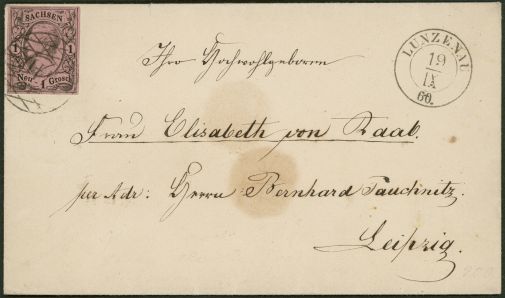 SACHSEN
1 1
Neu 1 Grosch
LUNZENAU
19
IX
60.
Ihro Hochwohlgeboren
Frau Elisabeth von Raab.
per Adr: Herrn Bernhard Tauchnitz.
Leipzig.